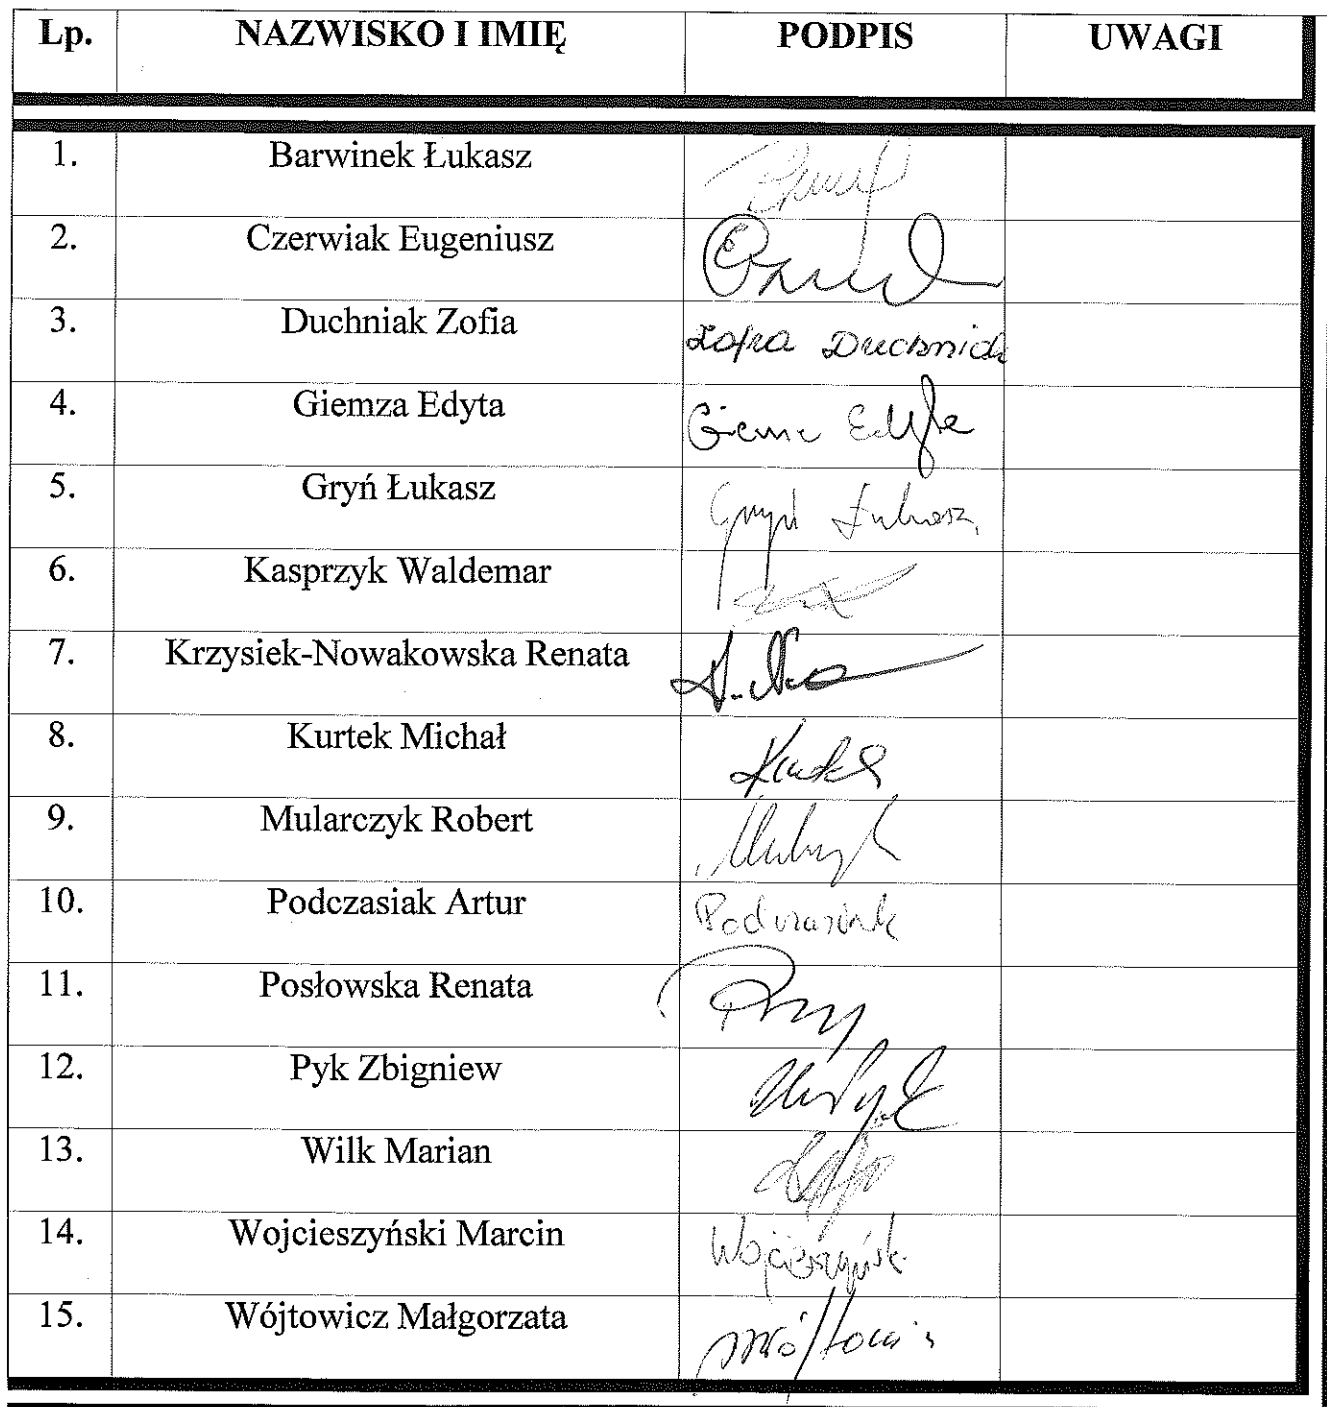 Lp. NAZWISKO I IMIĘ PODPIS UWAGI
1. Barwinek Łukasz
2. Czerwiak Eugeniusz
3. Duchniak Zofia Zofia Duchniak
4. Giemza Edyta Edyta
5. Gryń Łukasz Gryń Łukasz
6. Kasprzyk Waldemar
7. Krzysiek-Nowakowska Renata
8. Kurtek Michał Kurtek
9. Mularczyk Robert
10. Podczasiak Artur Podczasiak
11. Posłowska Renata
12. Pyk Zbigniew
13. Wilk Marian
14. Wojcieszyński Marcin
15. Wójtowicz Małgorzata